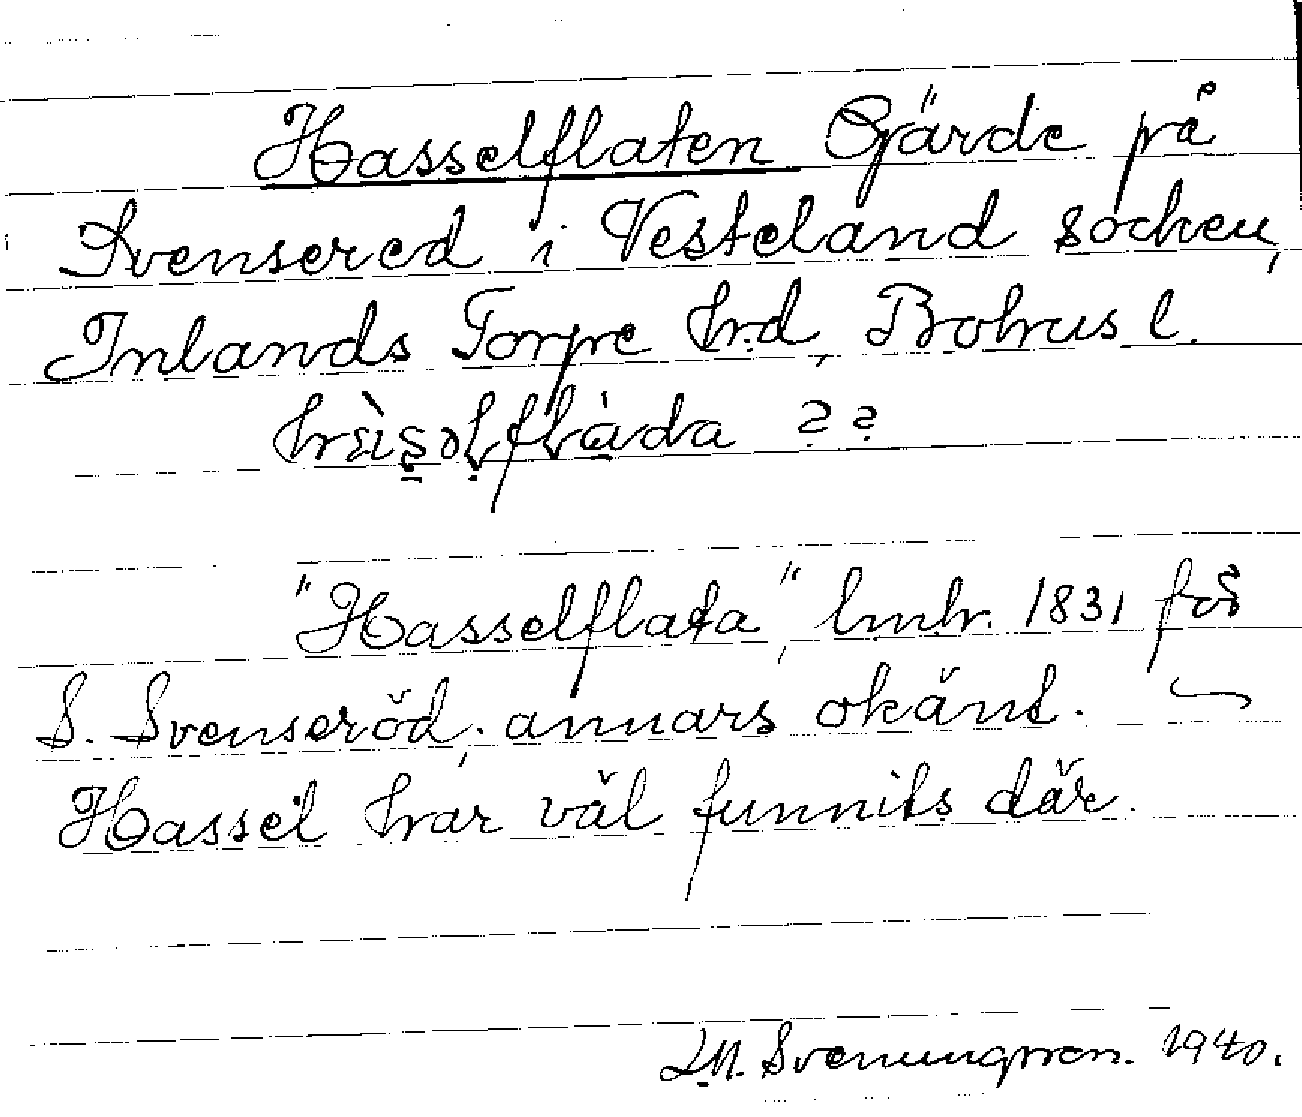 Hasselflaten Gärde på
Svensered i Vesteland socken,
Inlands Torpe hrd, Bohus l.
"Hasselflata", lmh. 1831 för
S. Svenseröd, annars okänt.
Hassel har väl funnits där.
D.M. Svenungsson. 1940.